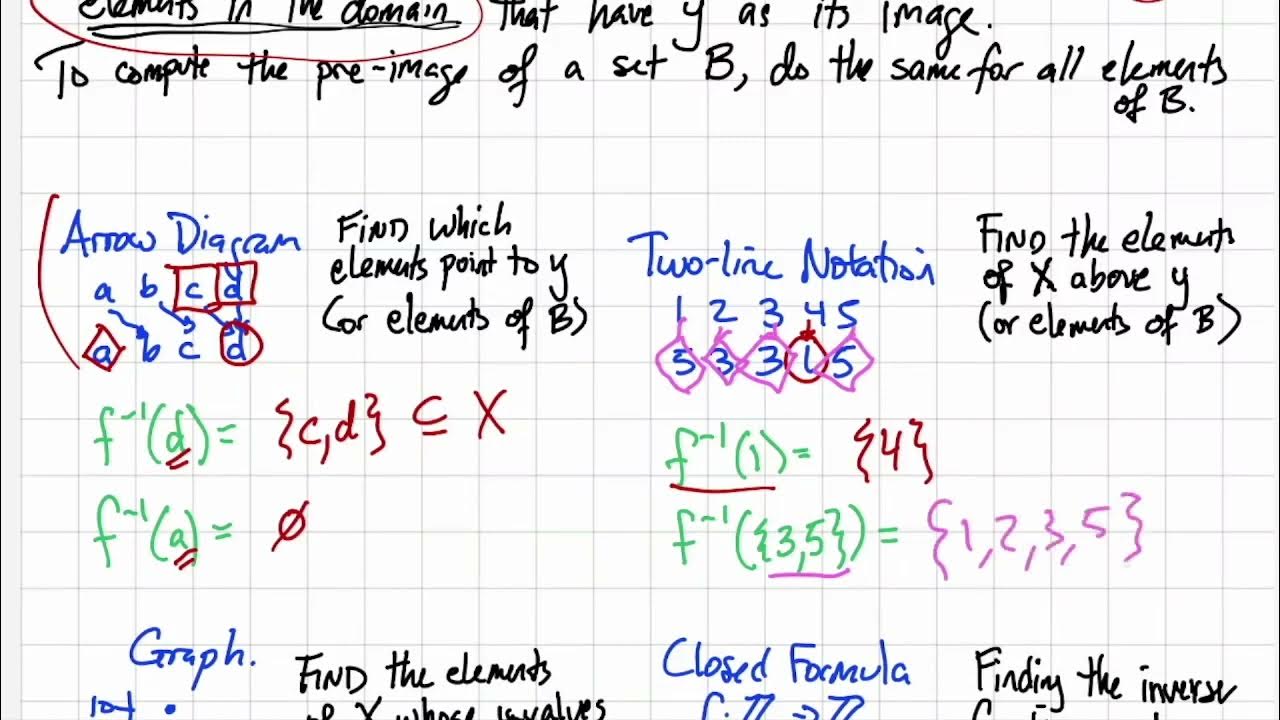 elements in the domain that have y as its image.
To compute the pre-image of a set B, do the same for all elements
of B.
Arrow Diagram
a b c d
a b c d
Find which
elements point to y
(or elements of B)
f⁻¹(d) = {c,d} ⊆ X
f⁻¹(a) = ∅
Two-line Notation
1 2 3 4 5
5 3 3 1 5
Find the elements
of X above y
(or elements of B)
f⁻¹(1) = {4}
f⁻¹({3,5}) = {1,2,3,5}
Graph.
Find the elements
of X whose
Closed Formula
f: ℤ → ℤ
Finding the inverse